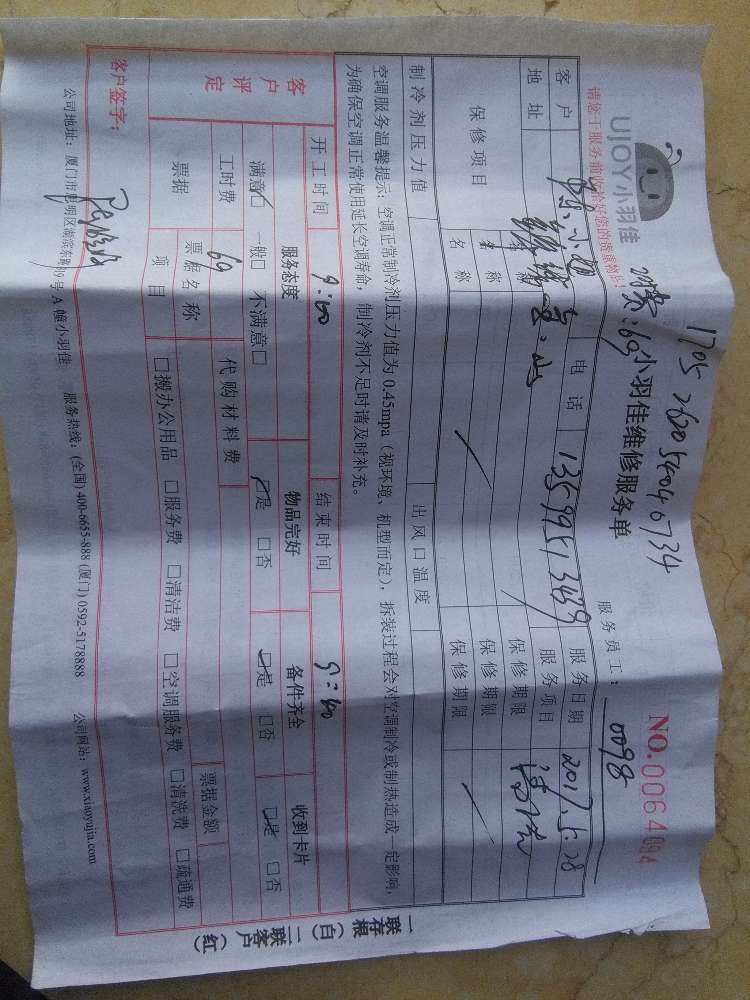 UJOY小羽佳
请您于服务前收拾好您的贵重物品!
1705 26005404 6734
:69
小羽佳维修服务单
NO.0064094
服务员工: 0098
客户
电话 13599513439
服务日期 2017.5.28
地址
服务项目
保修项目
名称
保修期限
名称
保修期限
名称
保修期限
制冷剂压力值
出风口温度
空调服务温馨提示: 空调正常制冷剂压力值为 0.45mpa (视环境、机型而定), 拆装过程会对空调制冷或制热造成一定影响,
为确保空调正常使用延长空调寿命, 制冷剂不足时请及时补充。
客户评定
开工时间
结束时间
服务态度
物品完好
备件齐全
收到卡片
满意☑ 一般□ 不满意□
☑是 □否
☑是 □否
□是 □否
工时费 69
代购材料费
票据
票据名称
票据金额
项目
□搬办公用品 □服务费 □清洁费 □空调服务费 □清洗费 □疏通费
客户签字:
公司地址: 厦门市思明区湖滨东路 号 A 幢小羽佳 服务热线: (全国) 400-6655-888 (厦门) 0592-5178888 公司网站: www.xiaoyujia.com
一联存根 (白) 二联客户 (红)